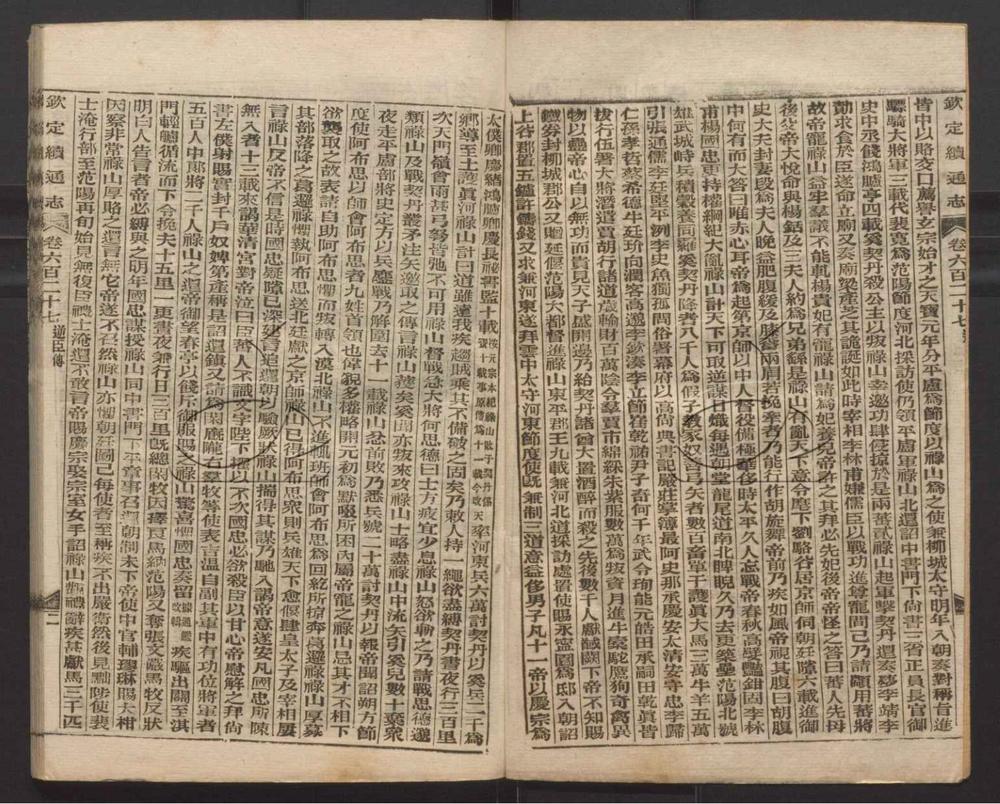 欽定續通志
卷六百二十七
皆中以賂故交口薦譽玄宗始才之天寶元年分平盧為節度以祿山為之使兼柳城太守明年入朝奏對稱旨進
驃騎大將軍三載代裴寬為范陽節度河北採訪使仍領平盧軍祿山北還詔中書門下尚書三省正員長官御
史中丞餞鴻臚亭四載奚契丹殺公主以叛祿山幸邀功肆侵掠於是兩蕃貳祿山起軍擊契丹還奏夢李靖李
勣求食於臣遂命立廟又奏廟梁產芝其詭誕如此時宰相李林甫嫌儒臣以戰功進尊寵間己乃請顓用蕃將
故帝寵祿山益牢羣議不能軋楊貴妃有寵祿山請為妃養兒帝許之其拜必先妃後帝帝怪之答曰蕃人先母
後父帝大悅命與楊銛及三夫人約為兄弟繇是祿山有亂天下意令麾下劉駱谷居京師伺朝廷隙六載進御
史大夫封妻段為夫人晚益肥腹緩及膝奮兩肩若挽牽者乃能行作胡旋舞帝前乃疾如風帝視其腹曰胡腹
中何有而大答曰唯赤心耳帝為起第京師以中人督役備極華侈時太平久人忘戰帝春秋高嬖豔鉗固李林
甫楊國忠更持權綱紀大亂祿山計天下可取逆謀日熾每過朝堂龍尾道南北睥睨久乃去更築壘范陽北號
雄武城峙兵積穀養同羅奚契丹降者八千人為假子教家奴善弓矢者數百畜單于護真大馬三萬牛羊五萬
引張通儒李廷堅平洌李史魚獨孤問俗署幕府以高尚典書記嚴莊掌簿最阿史那承慶安太清安守忠李歸
仁孫孝哲蔡希德牛廷玠向潤客高邈李欽湊李立節崔乾祐尹子奇何千年武令珣能元皓田承嗣田乾眞皆
拔行伍署大將潛遣賈胡行諸道歲輸財百萬陰令羣賈市錦綵朱紫服數萬為叛資月進牛橐駝鷹狗奇禽異
物以蠱帝心自以無功而貴見天子盛開邊乃紿契丹諸酋大置酒酖而殺之先後數千人獻馘闕下帝不知賜
鐵券封柳城郡公又贈延偃范陽大都督進祿山東平郡王九載兼河北道採訪處置使賜永寧園為邸入朝詔
上谷郡置五鑪許鑄錢又求兼河東遂拜雲中太守河東節度使既兼制三道意益侈男子凡十一帝以慶宗為
太僕卿慶緒鴻臚卿慶長祕書監十載按元宗本紀祿山敗于契丹係天寶十載事原傳為十一載今改率河東兵六萬討契丹以奚兵二千為
鄉導至土護真河祿山計曰道雖遠我疾趨賊乘其不備破之固矣乃敕人持一繩欲盡縛契丹晝夜行三百里
次天門嶺會雨甚弓弩皆弛不可用祿山督戰急大將何思德曰士方疲宜少息祿山怒欲斬之乃請戰思德邈
類祿山及戰契丹叢矛注矢邀取之傳言祿山獲矣奚聞亦叛夾攻祿山士略盡祿山中流矢引奚兒數十棄衆
夜走平盧部將史定方以兵鏖戰乃解圍去十一載祿山忿前敗乃悉兵號二十萬討契丹以報帝聞詔朔方節
度使阿布思以師會阿布思者九姓首領也偉貌多權略開元初為默啜所困內屬帝寵之祿山忌其才不相下
欲襲取之故表請自助阿布思懼而叛轉入漠北祿山不進輒班師會阿布思為回紇所掠奔葛邏祿祿山厚募
其部落降之葛邏祿懼執阿布思送北廷獻之京師祿山已得阿布思眾則兵雄天下愈偃肆皇太子及宰相屢
言祿山反帝不信是時國忠疑隙已深建言追還朝以驗厥狀祿山揣得其謀乃馳入謁帝意遂安凡國忠所陳
無入者十三載來謁華清宮對帝泣曰臣蕃人不識文字陛下擢以不次國忠必欲殺臣以甘心帝慰解之拜尚
書左僕射賜實封千戶奴婢第產稱是詔還鎮又請為閑廄隴右羣牧等使表吉溫自副其軍中有功位將軍者
五百人中郎將二千人祿山之還帝御望春亭以餞斥御服賜之祿山驚喜懼國忠奏留據通鑑改輯疾驅出關至淇
門輕艫循流而下令挽夫十五里一更晝夜兼行日三百里既總閑牧因擇良馬納范陽又奪張文儼馬牧反狀
明白人告言者帝必縛與之明年國忠謀授祿山同中書門下平章事召還朝制未下帝使中官輔璆琳賜大柑
因察非常祿山厚賂之還言無它帝遂不召然祿山亦懼朝廷圖己每使者至稱疾不出嚴衛然後見黜陟使裴
士淹行部至范陽再旬始見無復臣禮士淹還不敢言帝賜慶宗娶宗室女手詔祿山觀禮辭疾甚獻馬三千匹
欽定續通志
卷六百二十七
逆臣傳
二